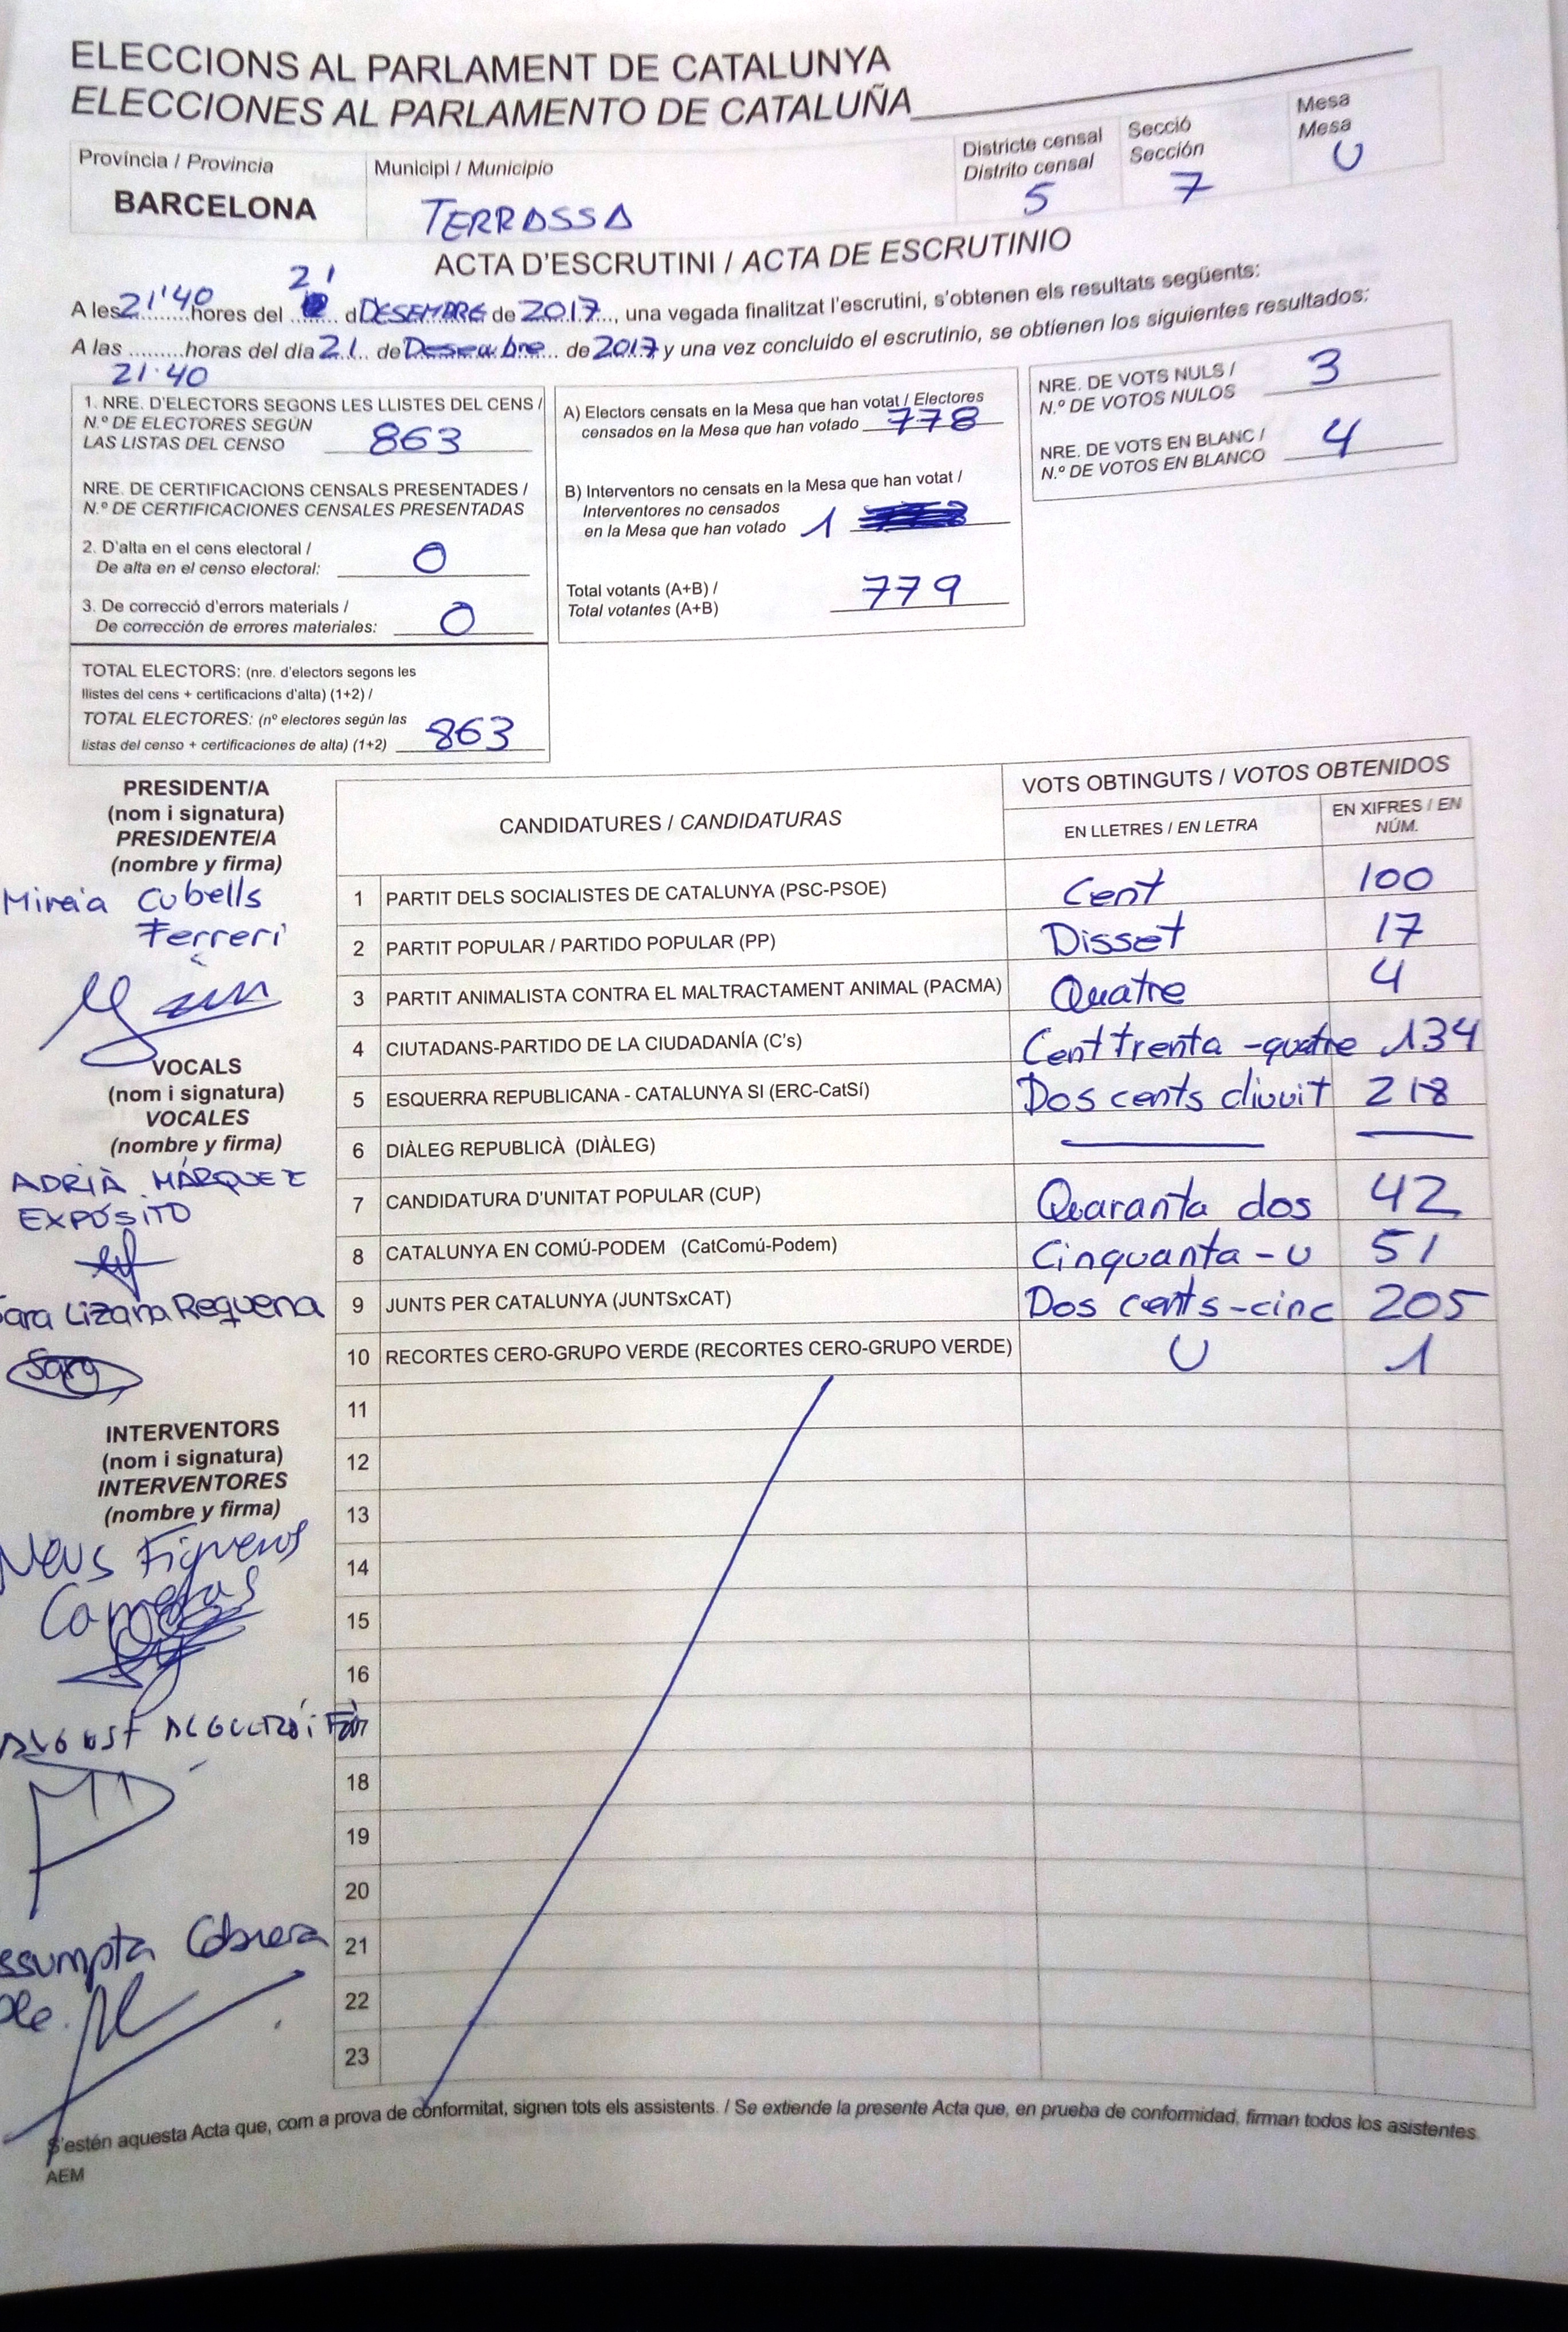 ELECCIONS AL PARLAMENT DE CATALUNYA
ELECCIONES AL PARLAMENTO DE CATALUÑA
Província / Provincia
BARCELONA
Municipi / Municipio
TERRASSA
Districte censal
Distrito censal
5
Secció
Sección
7
Mesa
Mesa
U
ACTA D'ESCRUTINI / ACTA DE ESCRUTINIO
21
A les 21'40 hores del ........ d DESEMBRE de 2017..., una vegada finalitzat l'escrutini, s'obtenen els resultats següents:
A las .........horas del día 21.... de Desembre... de 2017 y una vez concluido el escrutinio, se obtienen los siguientes resultados:
21:40
1. NRE. D'ELECTORS SEGONS LES LLISTES DEL CENS /
N.º DE ELECTORES SEGÚN
LAS LISTAS DEL CENSO 863
NRE. DE CERTIFICACIONS CENSALS PRESENTADES /
N.º DE CERTIFICACIONES CENSALES PRESENTADAS
2. D'alta en el cens electoral /
De alta en el censo electoral: 0
3. De correcció d'errors materials /
De corrección de errores materiales: 0
TOTAL ELECTORS: (nre. d'electors segons les
llistes del cens + certificacions d'alta) (1+2) /
TOTAL ELECTORES: (nº electores según las
listas del censo + certificaciones de alta) (1+2) 863
A) Electors censats en la Mesa que han votat / Electores
censados en la Mesa que han votado 778
B) Interventors no censats en la Mesa que han votat /
Interventores no censados
en la Mesa que han votado 1
Total votants (A+B) /
Total votantes (A+B) 779
NRE. DE VOTS NULS /
N.º DE VOTOS NULOS 3
NRE. DE VOTS EN BLANC /
N.º DE VOTOS EN BLANCO 4
PRESIDENT/A
(nom i signatura)
PRESIDENTE/A
(nombre y firma)
Mireia Cubells
Ferreri
VOCALS
(nom i signatura)
VOCALES
(nombre y firma)
ADRIÀ MÁRQUEZ
EXPÓSITO
Sara Lizana Requena
Sara
INTERVENTORS
(nom i signatura)
INTERVENTORES
(nombre y firma)
Neus Figueras
AUGUST
ssumpta Cabrera
CANDIDATURES / CANDIDATURAS
VOTS OBTINGUTS / VOTOS OBTENIDOS
EN LLETRES / EN LETRA
EN XIFRES / EN NÚM.
1 PARTIT DELS SOCIALISTES DE CATALUNYA (PSC-PSOE) Cent 100
2 PARTIT POPULAR / PARTIDO POPULAR (PP) Disset 17
3 PARTIT ANIMALISTA CONTRA EL MALTRACTAMENT ANIMAL (PACMA) Quatre 4
4 CIUTADANS-PARTIDO DE LA CIUDADANÍA (C's) Cent trenta-quatre 134
5 ESQUERRA REPUBLICANA - CATALUNYA SI (ERC-CatSí) Dos cents divuit 218
6 DIÀLEG REPUBLICÀ (DIÀLEG)
7 CANDIDATURA D'UNITAT POPULAR (CUP) Quaranta dos 42
8 CATALUNYA EN COMÚ-PODEM (CatComú-Podem) Cinquanta-u 51
9 JUNTS PER CATALUNYA (JUNTSxCAT) Dos cents-cinc 205
10 RECORTES CERO-GRUPO VERDE (RECORTES CERO-GRUPO VERDE) U 1
11
12
13
14
15
16
18
19
20
21
22
23
S'estén aquesta Acta que, com a prova de conformitat, signen tots els assistents. / Se extiende la presente Acta que, en prueba de conformidad, firman todos los asistentes.
AEM